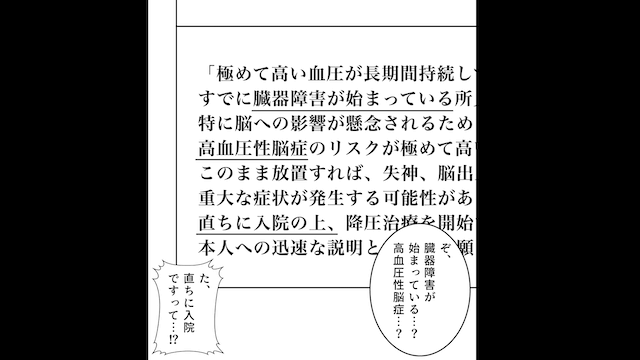 「極めて高い血圧が長期間持続し
すでに臓器障害が始まっている所
特に脳への影響が懸念されるため
高血圧性脳症のリスクが極めて高
このまま放置すれば、失神、脳出
重大な症状が発生する可能性があ
直ちに入院の上、降圧治療を開始
本人への迅速な説明と
願
ぞ、
臓器障害が
始まっている…?
高血圧性脳症…?
た、
直ちに入院
ですって…!?